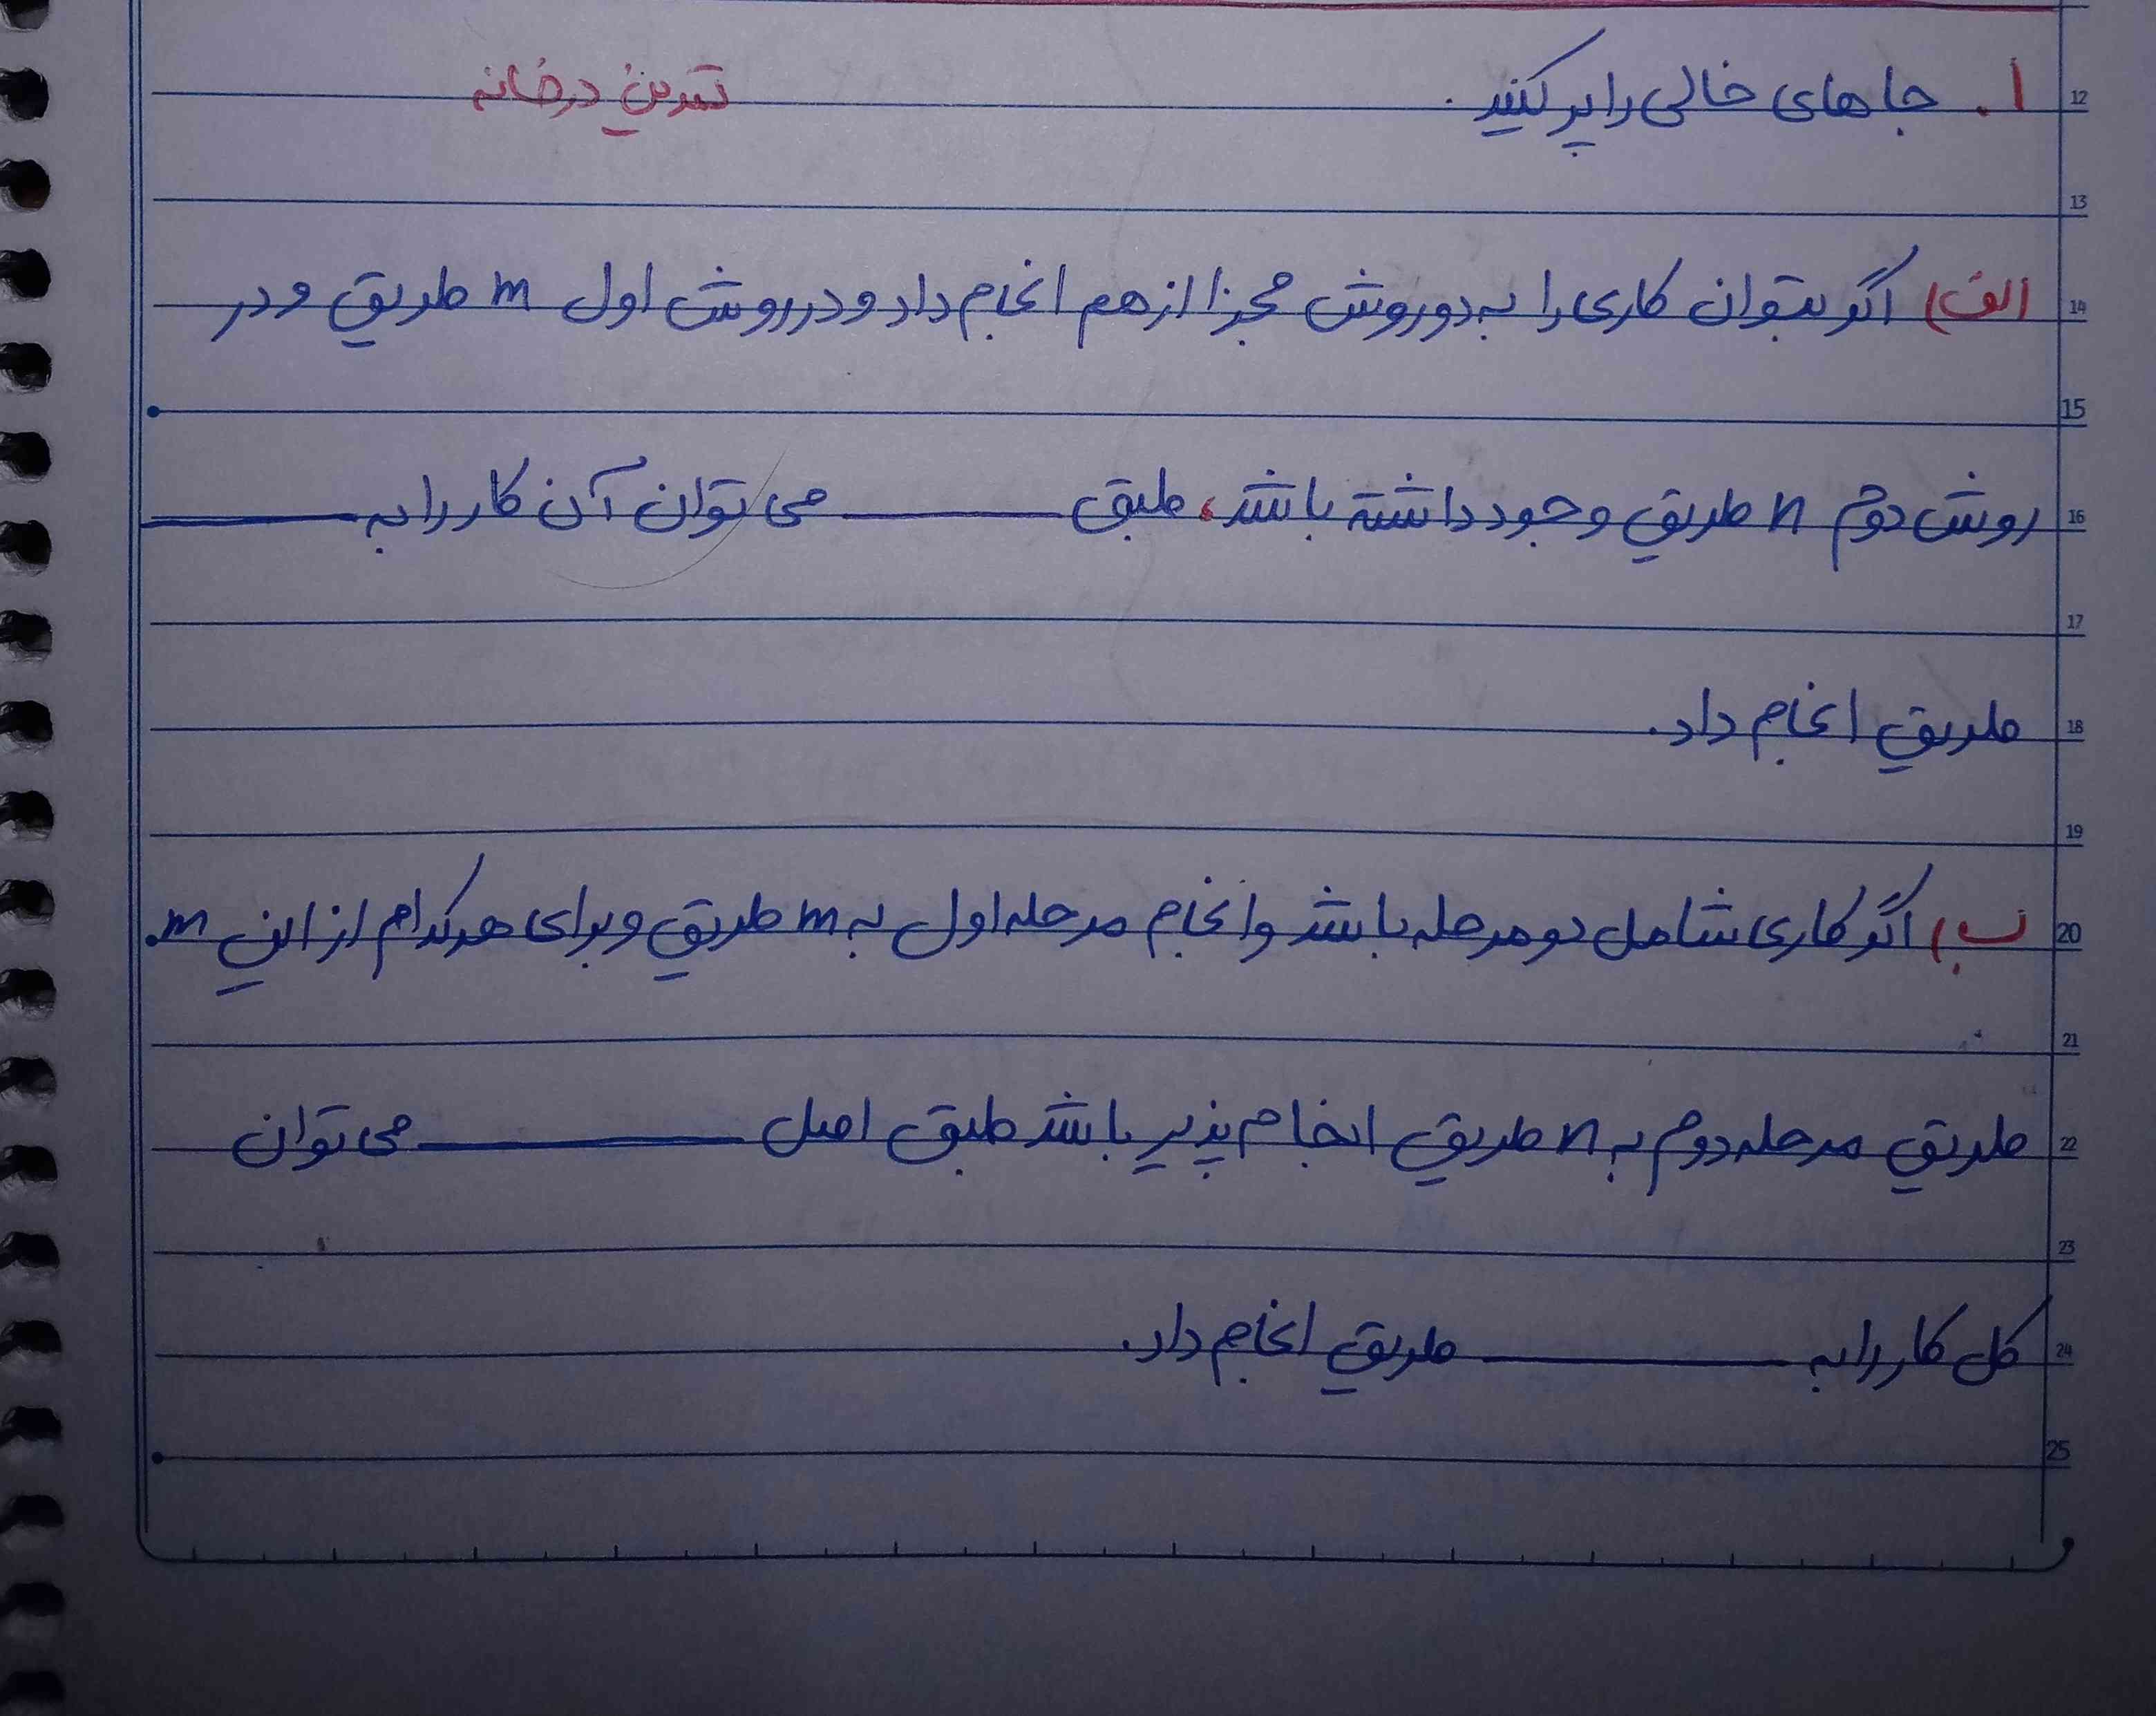 ۱. جاهای خالی را پر کنید. تمرین در خانه
12
13
الف) اگر بتوان کاری را به دو روش مجزا از هم انجام داد و در روش اول m طریق و در
14
15
روش دوم n طریق وجود داشته باشد، طبق ______ می توان آن کار را به ______
16
17
طریق انجام داد.
18
19
ب) اگر کاری شامل دو مرحله باشد و انجام مرحله اول به m طریق و برای هر کدام از این m
20
21
طریق مرحله دوم به n طریق انجام پذیر باشد طبق اصل ______ می توان
22
23
کل کار را به ______ طریق انجام داد.
24
25